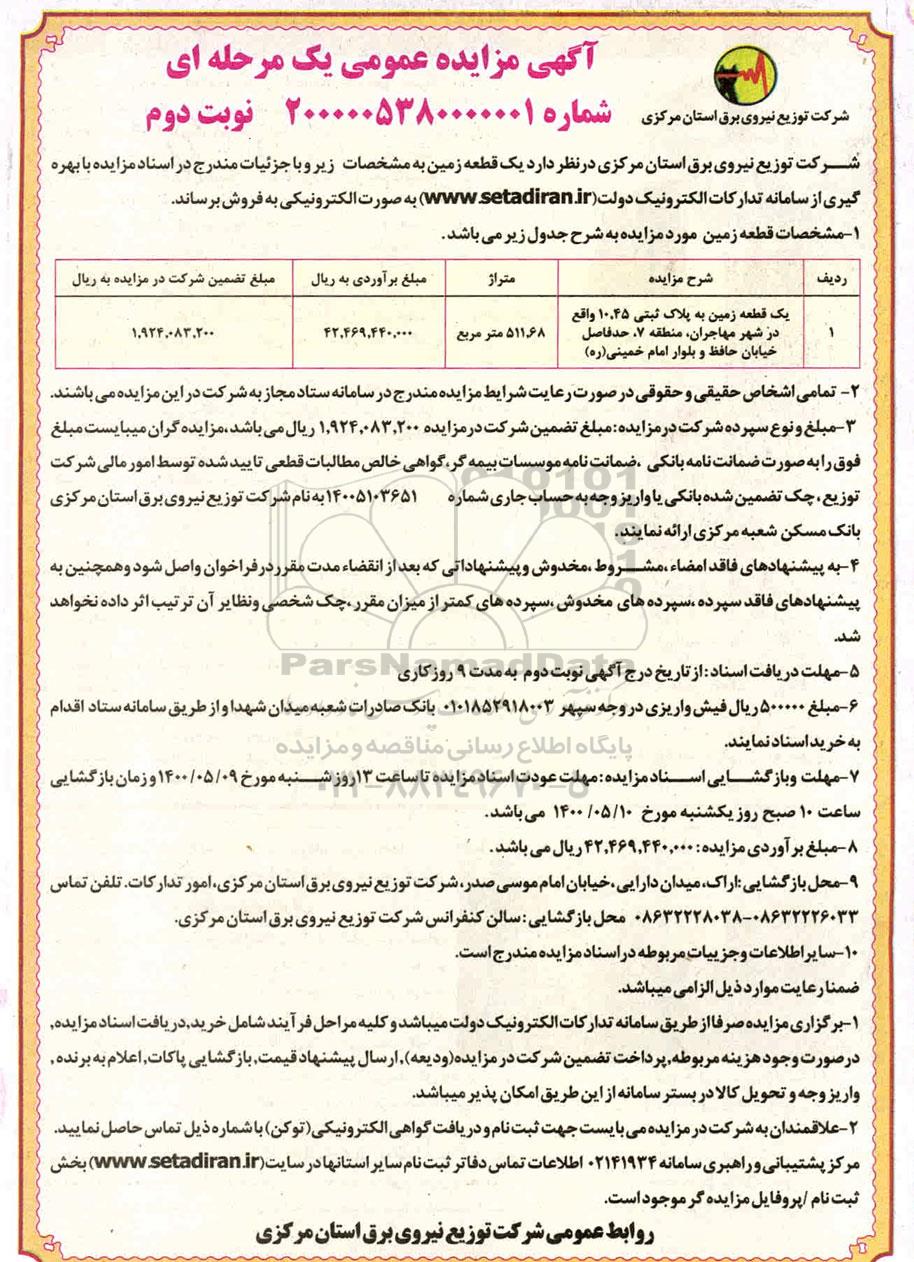 آگهی مزایده عمومی یک مرحله ای
شماره ۲۰۰۰۰۰۵۳۸۰۰۰۰۰۰۱ نوبت دوم
شرکت توزیع نیروی برق استان مرکزی
شــرکت توزیع نیروی برق استان مرکزی درنظر دارد یک قطعه زمین به مشخصات زیر و با جزئیات مندرج در اسناد مزایده با بهره
گیری از سامانه تدارکات الکترونیک دولت(www.setadiran.ir) به صورت الکترونیکی به فروش برساند.
۱-مشخصات قطعه زمین مورد مزایده به شرح جدول زیر می باشد.
ردیف شرح مزایده متراژ مبلغ برآوردی به ریال مبلغ تضمین شرکت در مزایده به ریال
یک قطعه زمین به پلاک ثبتی ۱۰،۴۵ واقع
۱ در شهر مهاجران، منطقه ۷، حدفاصل ۵۱۱،۶۸ متر مربع ۴۲,۴۶۹,۴۴۰,۰۰۰ ۱,۹۲۴,۰۸۳,۲۰۰
خیابان حافظ و بلوار امام خمینی(ره)
۲- تمامی اشخاص حقیقی و حقوقی در صورت رعایت شرایط مزایده مندرج در سامانه ستاد مجاز به شرکت در این مزایده می باشند.
۳-مبلغ و نوع سپرده شرکت در مزایده: مبلغ تضمین شرکت در مزایده ۱,۹۲۴,۰۸۳,۲۰۰ ریال می باشد، مزایده گران میبایست مبلغ
فوق را به صورت ضمانت نامه بانکی ، ضمانت نامه موسسات بیمه گر، گواهی خالص مطالبات قطعی تایید شده توسط امور مالی شرکت
توزیع، چک تضمین شده بانکی یا واریز وجه به حساب جاری شماره ۱۴۰۰۵۱۰۳۶۵۱ به نام شرکت توزیع نیروی برق استان مرکزی
بانک مسکن شعبه مرکزی ارائه نمایند.
۴-به پیشنهادهای فاقد امضاء، مشــروط، مخدوش و پیشنهاداتی که بعد از انقضاء مدت مقرر در فراخوان واصل شود و همچنین به
پیشنهادهای فاقد سپرده، سپرده های مخدوش، سپرده های کمتر از میزان مقرر، چک شخصی ونظایر آن ترتیب اثر داده نخواهد
شد.
۵-مهلت دریافت اسناد: از تاریخ درج آگهی نوبت دوم به مدت ۹ روز کاری
۶-مبلغ ۵۰۰۰۰۰ ریال فیش واریزی در وجه سپهر ۰۱۰۱۸۵۲۹۱۸۰۰۳ بانک صادرات شعبه میدان شهدا و از طریق سامانه ستاد اقدام
به خرید اسناد نمایند.
۷-مهلت وبازگشــایی اســناد مزایده: مهلت عودت اسناد مزایده تا ساعت ۱۳ روز شــنبه مورخ ۱۴۰۰/۰۵/۰۹ و زمان بازگشایی
ساعت ۱۰ صبح روز یکشنبه مورخ ۱۴۰۰/۰۵/۱۰ می باشد.
۸-مبلغ برآوردی مزایده: ۴۲,۴۶۹,۴۴۰,۰۰۰ ریال می باشد.
۹-محل بازگشایی: اراک، میدان دارایی، خیابان امام موسی صدر، شرکت توزیع نیروی برق استان مرکزی، امور تدارکات. تلفن تماس
۰۸۶۳۲۲۲۶۰۳۳-۰۸۶۳۲۲۲۸۰۳۸ محل بازگشایی: سالن کنفرانس شرکت توزیع نیروی برق استان مرکزی.
۱۰-سایر اطلاعات وجزییات مربوطه در اسناد مزایده مندرج است.
ضمنا رعایت موارد ذیل الزامی میباشد.
۱-برگزاری مزایده صرفا از طریق سامانه تدارکات الکترونیک دولت میباشد و کلیه مراحل فرآیند شامل خرید, دریافت اسناد مزایده,
درصورت وجود هزینه مربوطه, پرداخت تضمین شرکت در مزایده(ودیعه), ارسال پیشنهاد قیمت, بازگشایی پاکات, اعلام به برنده,
واریز وجه و تحویل کالا در بستر سامانه از این طریق امکان پذیر میباشد.
۲-علاقمندان به شرکت در مزایده می بایست جهت ثبت نام و دریافت گواهی الکترونیکی(توکن) با شماره ذیل تماس حاصل نمایید.
مرکز پشتیبانی و راهبری سامانه ۰۲۱۴۱۹۳۴ اطلاعات تماس دفاتر ثبت نام سایر استانها در سایت(www.setadiran.ir) بخش
ثبت نام /پروفایل مزایده گر موجود است.
روابط عمومی شرکت توزیع نیروی برق استان مرکزی
ParsNamadData
پایگاه اطلاع رسانی مناقصه و مزایده
۰۲۱-۸۸۳۴۹۶۷۰-۵